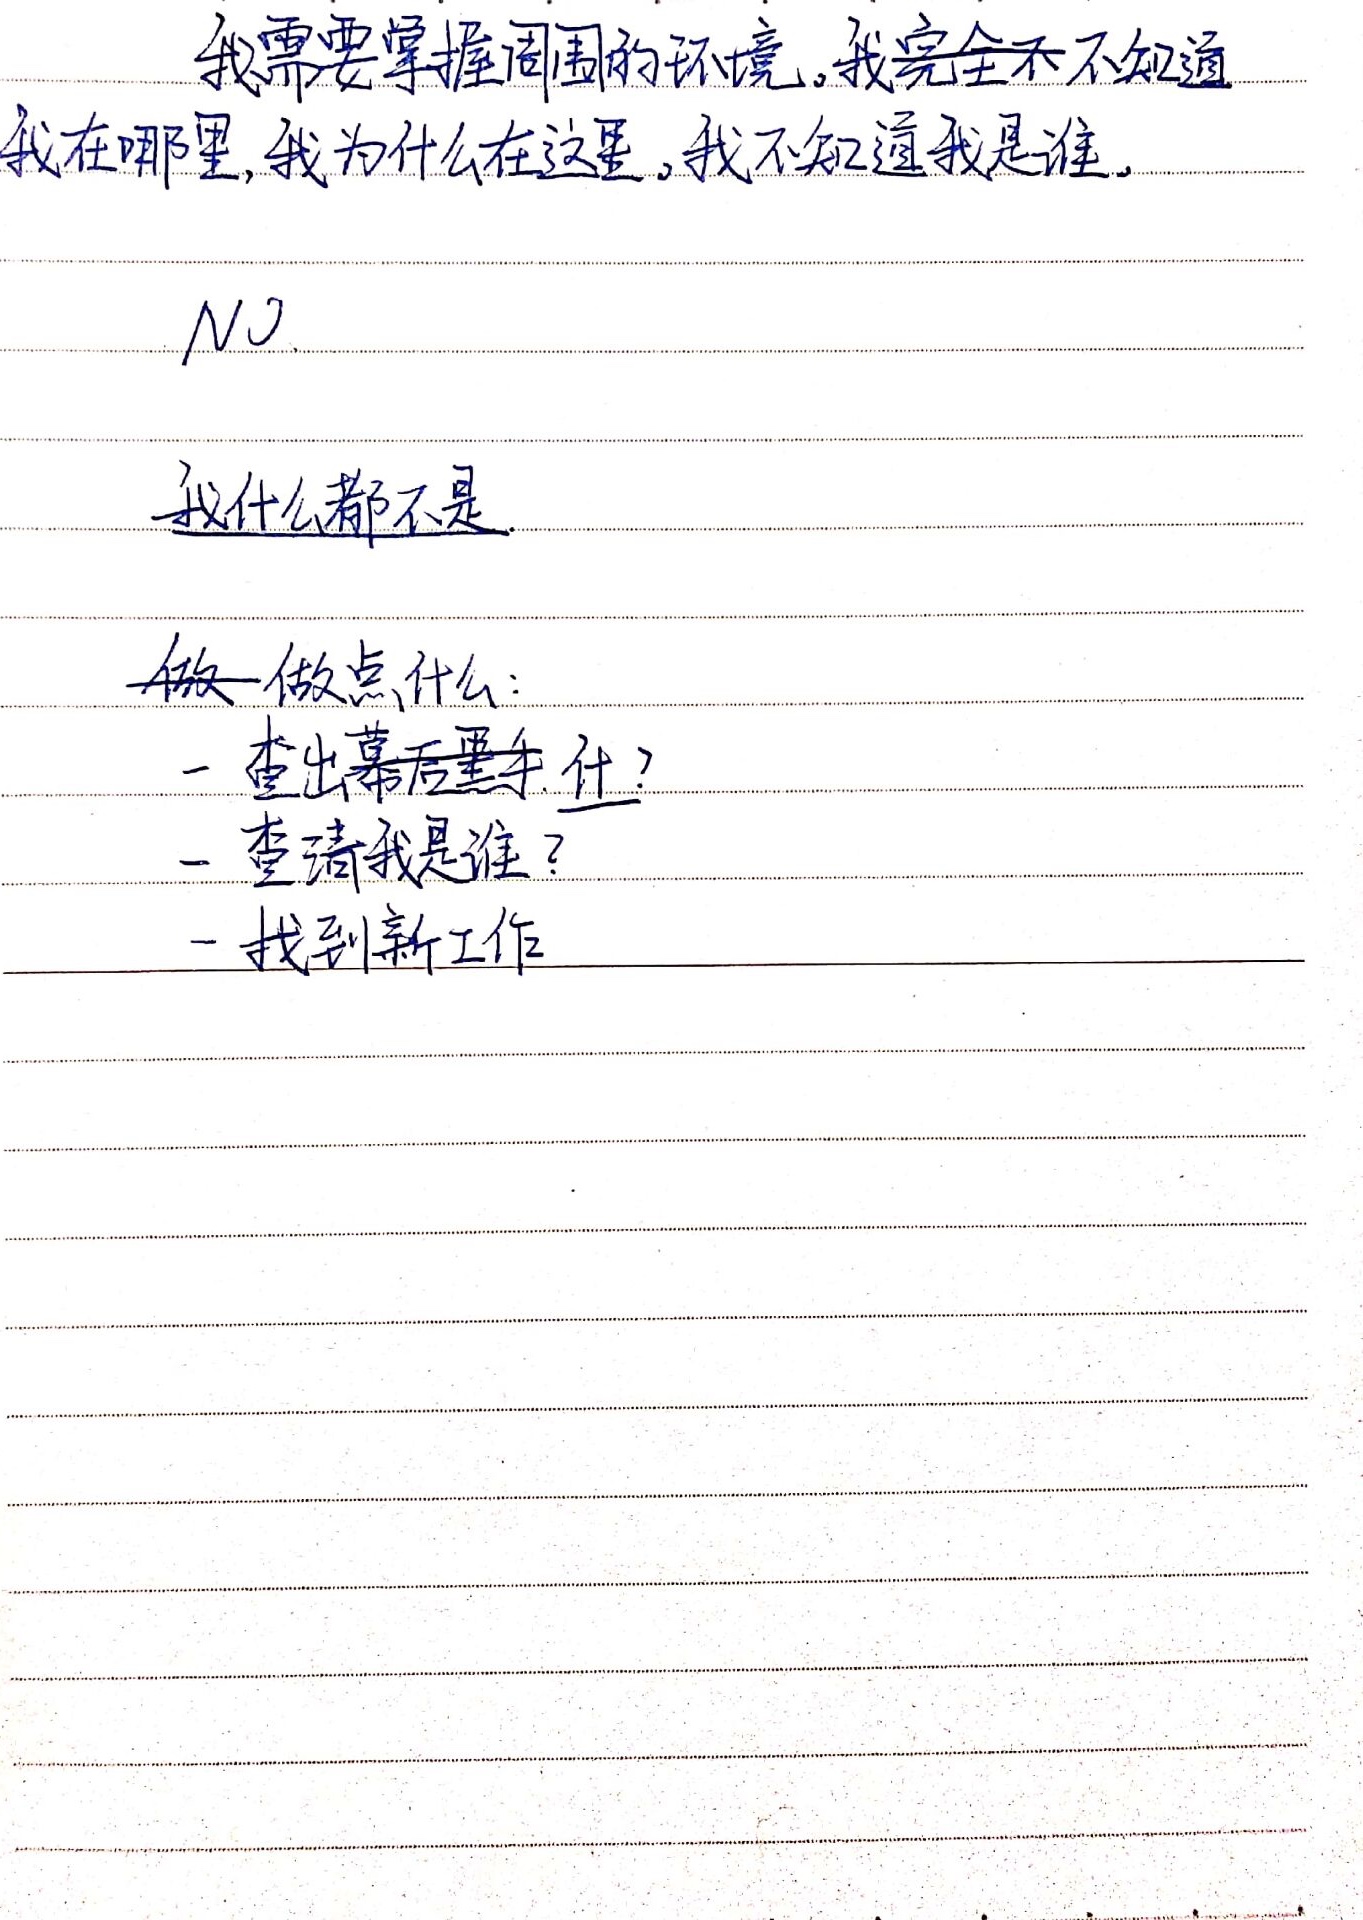 我需要掌握周围的环境。我完全不不知道
我在哪里,我为什么在这里。我不知道我是谁。
NO.
我什么都不是.
做 做点什么:
- 查出幕后黑手. 什?
- 查清我是谁?
- 找到新工作